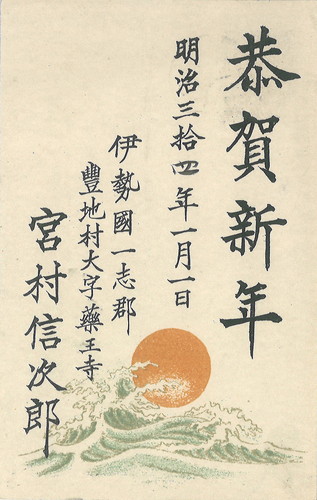 恭賀新年
明治三拾四年一月一日
伊勢國一志郡
豐地村大字藥王寺
宮村信次郎